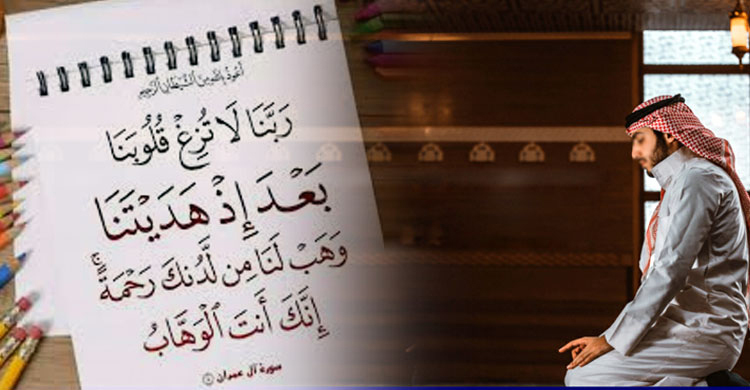 أعوذ بالله من الشيطان الرجيم
رَبَّنَا لَا تُزِغْ قُلُوبَنَا
بَعْدَ إِذْ هَدَيْتَنَا
وَهَبْ لَنَا مِن لَّدُنكَ رَحْمَةً ۚ
إِنَّكَ أَنتَ ٱلْوَهَّابُ
سورة آل عمران